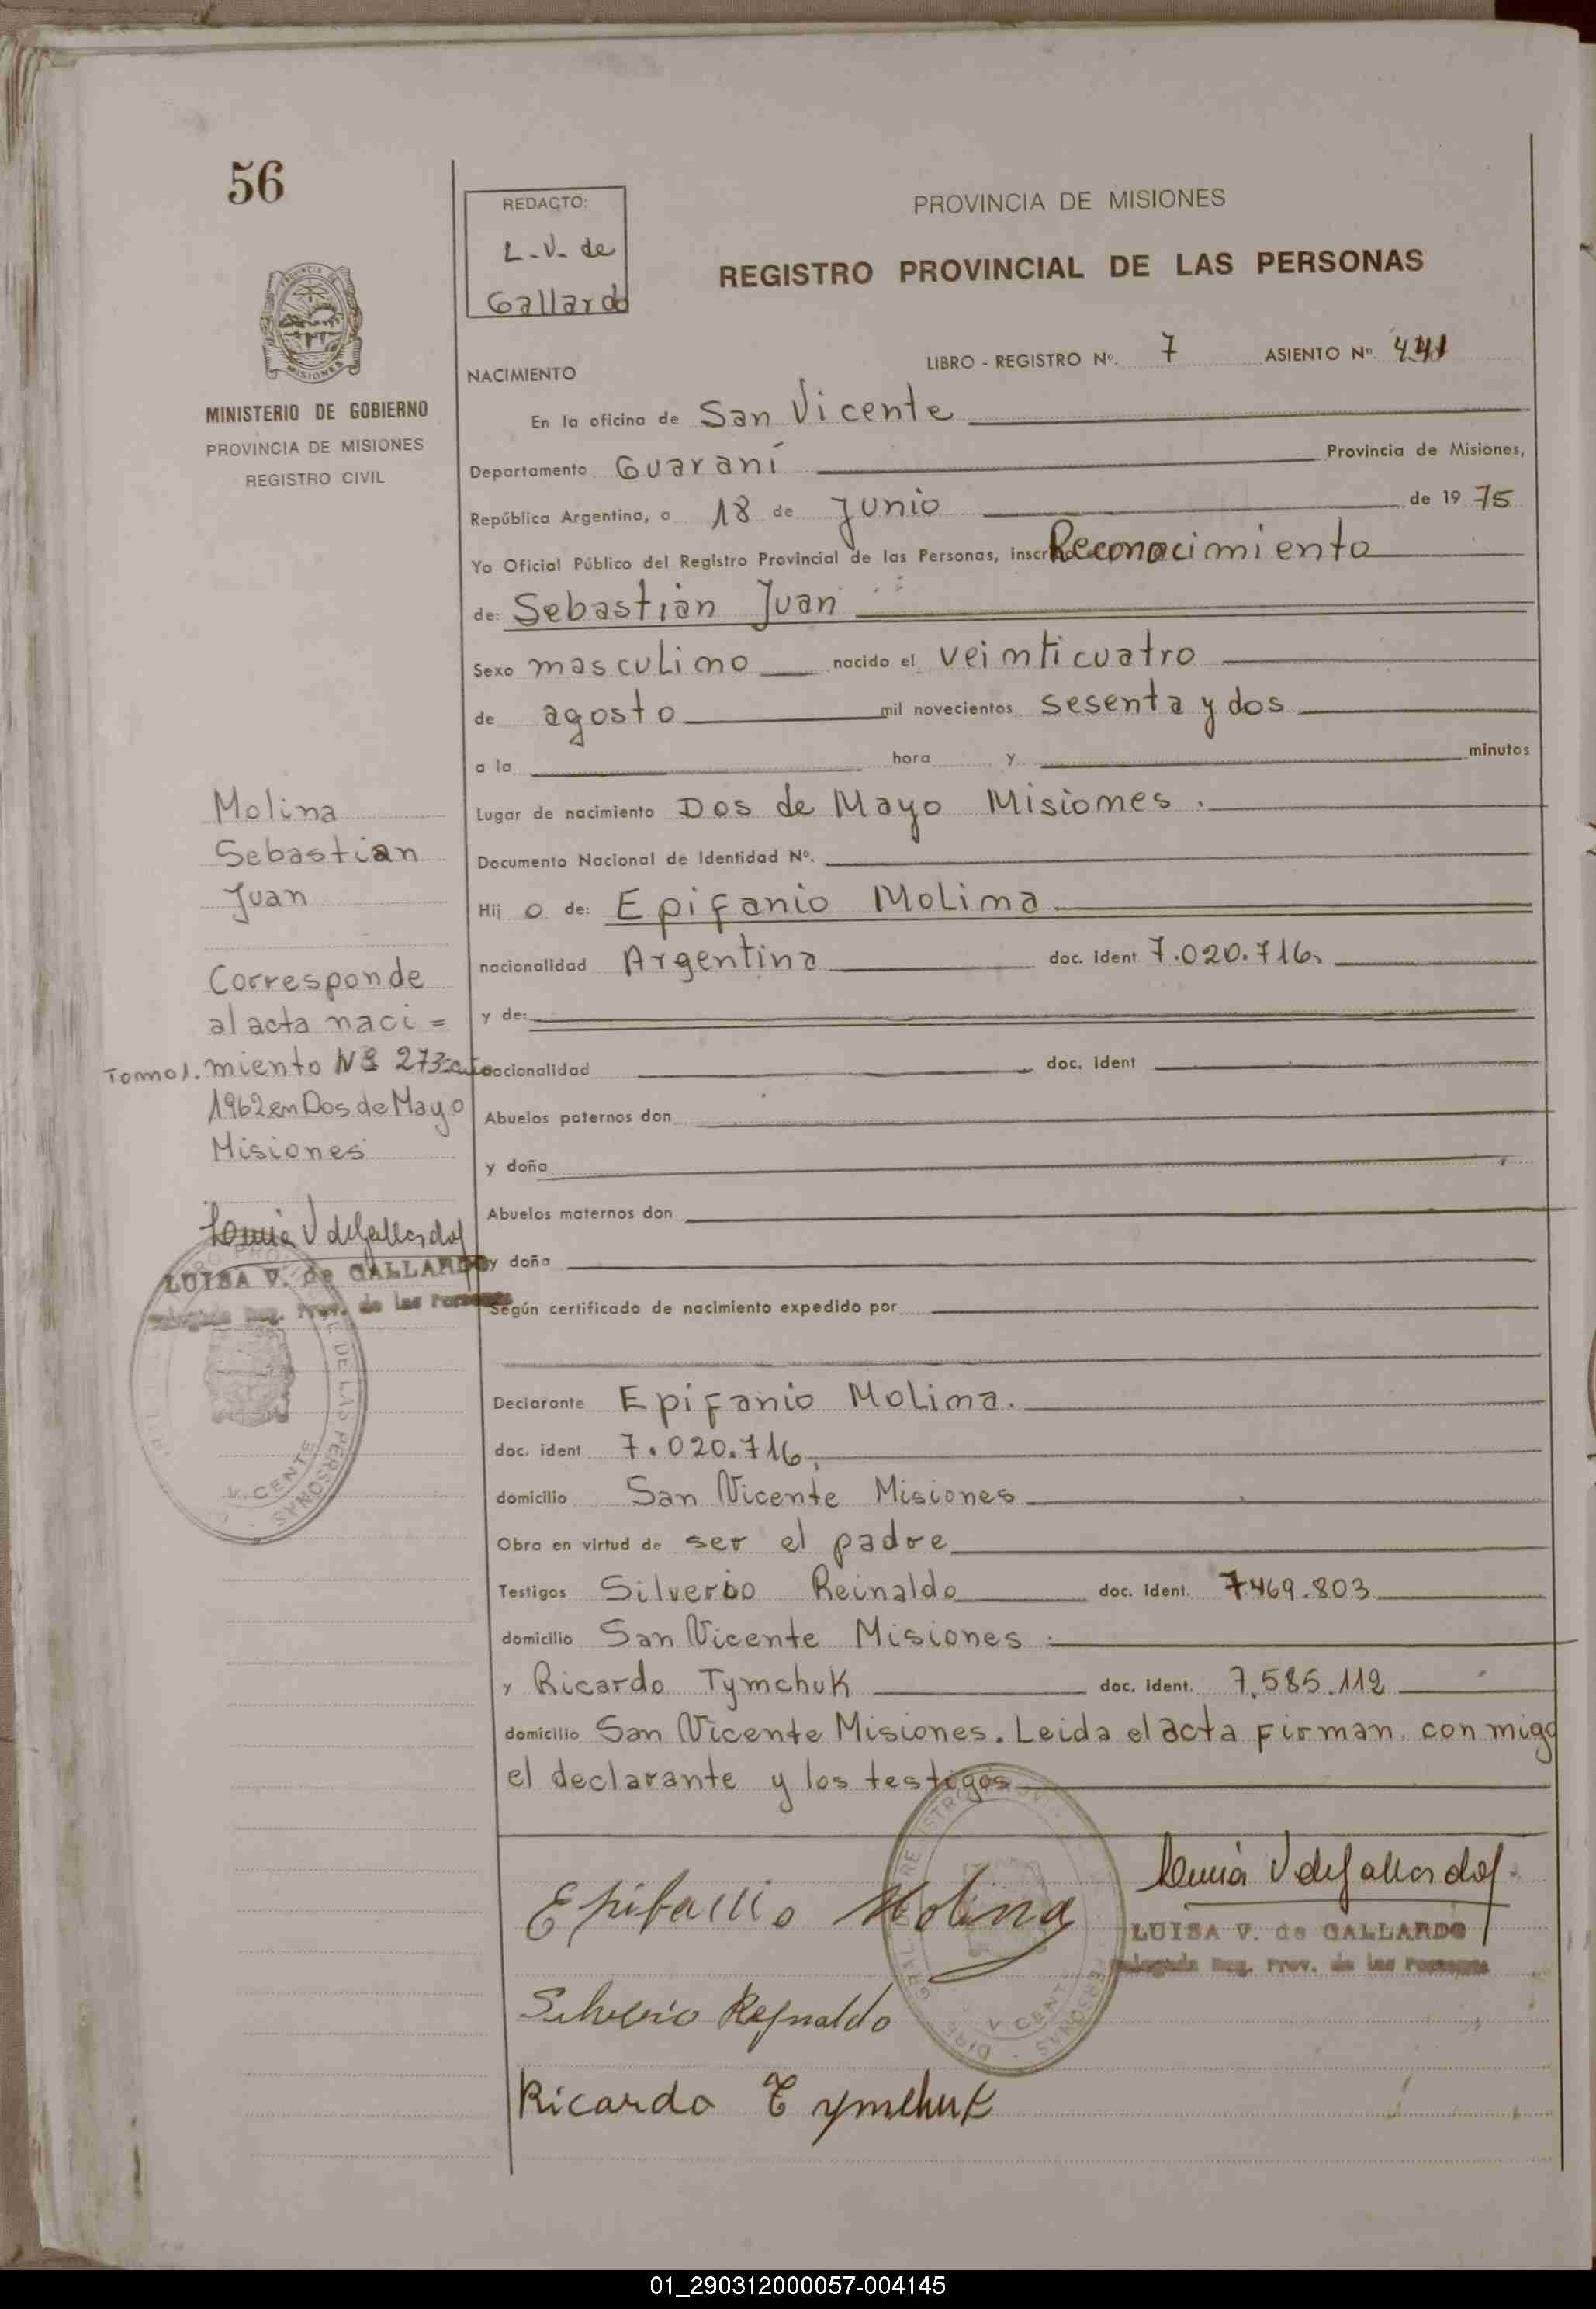 56
REDACTO:
L.V. de
Gallardo
PROVINCIA DE MISIONES
REGISTRO PROVINCIAL DE LAS PERSONAS
MISIONES
MINISTERIO DE GOBIERNO
PROVINCIA DE MISIONES
REGISTRO CIVIL
LIBRO - REGISTRO Nº. 7 ASIENTO Nº. 441
NACIMIENTO
En la oficina de San Vicente
Departamento Guaraní Provincia de Misiones,
República Argentina, a 18 de Junio de 1975
Yo Oficial Público del Registro Provincial de las Personas, Reconocimiento
de: Sebastian Juan
Sexo masculino nacido el veinticuatro
de agosto mil novecientos sesenta y dos
a la hora y minutos
Lugar de nacimiento Dos de Mayo Misiones.
Documento Nacional de Identidad Nº.
Hij o de: Epifanio Molina
nacionalidad Argentina doc. ident 7.020.716.
y de:
nacionalidad doc. ident
Abuelos paternos don
y doña
Abuelos maternos don
y doña
Según certificado de nacimiento expedido por
Declarante Epifanio Molina.
doc. ident 7.020.716.
domicilio San Vicente Misiones
Obra en virtud de ser el padre
Testigos Silverio Reinaldo doc. ident. 7.469.803
domicilio San Vicente Misiones.
y Ricardo Tymchuk doc. ident. 7.585.112
domicilio San Vicente Misiones. Leida el acta firman conmigo
el declarante y los testigos
Molina
Sebastian
Juan
Corresponde
al acta naci=
Tomo 1. miento Nº 273
1962 en Dos de Mayo
Misiones
Luisa V de Gallardo
LUISA V. de GALLARDO
Delegada Reg. Prov. de las Personas
DE LAS PERSONAS
V. CENTE
Epifanio Molina
Luisa V de Gallardo
LUISA V. de GALLARDO
Delegada Reg. Prov. de las Personas
Silverio Reynaldo
Ricardo Tymchuk
01_290312000057-004145